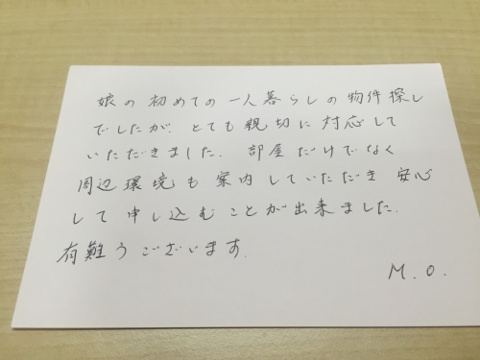 娘の初めての一人暮らしの物件探し
でしたが、とても親切に対応して
いただきました。部屋だけでなく
周辺環境も案内していただき安心
して申し込むことが出来ました。
有難うございます。
M.O.